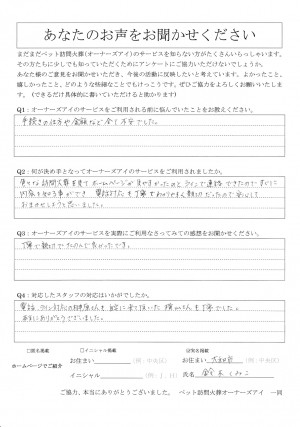 あなたのお声をお聞かせください
まだまだペット訪問火葬(オーナーズアイ)のサービスを知らない方がたくさんいらっしゃいます。
その方たちに少しでも知っていただくためにアンケートにご協力いただけないでしょうか。
あなた様のご意見をお聞かせいただき、今後の活動に反映したいと考えています。よかったこと、
嬉しかったこと、どのような些細なことでもけっこうです。ぜひご協力をよろしくお願いいたします。
(できるだけ具体的に書いていただけると助かります)
Q1:オーナーズアイのサービスをご利用される前に悩んでいたことをお教えください。
手続きの仕方や金額など全て不安でした。
Q2:何が決め手となってオーナーズアイのサービスをご利用されましたか。
色々な訪問火葬を見てホームページが見やすかったのとラインで連絡できたのですぐに
内容を知る事ができ 電話対応も丁寧でわかりやすく親切だったので安心して
おまかせしようと思いました。
Q3:オーナーズアイのサービスを実際にご利用なさってみての感想をお聞かせください。
丁寧で親切でたのんで良かったです。
Q4:対応したスタッフの対応はいかがでしたか。
電話、ライン対応の
さんも丁寧でした。
ありがとうございました。
□匿名掲載 □イニシャル掲載 ☑実名掲載
ホームページでご紹介
お住まい (例:中央区) お住まい (例:中央区)
イニシャル (例:I.H) 氏名 鈴木くみこ
ご協力、本当にありがとうございました。 ペット訪問火葬オーナーズアイ 一同